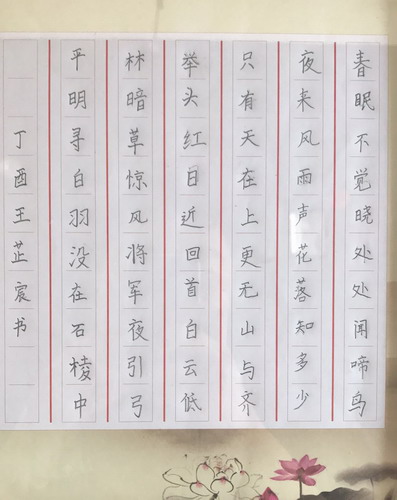 春眠不觉晓处处闻啼鸟
夜来风雨声花落知多少
只有天在上更无山与齐
举头红日近回首白云低
林暗草惊风将军夜引弓
平明寻白羽没在石棱中
丁酉王芷宸书